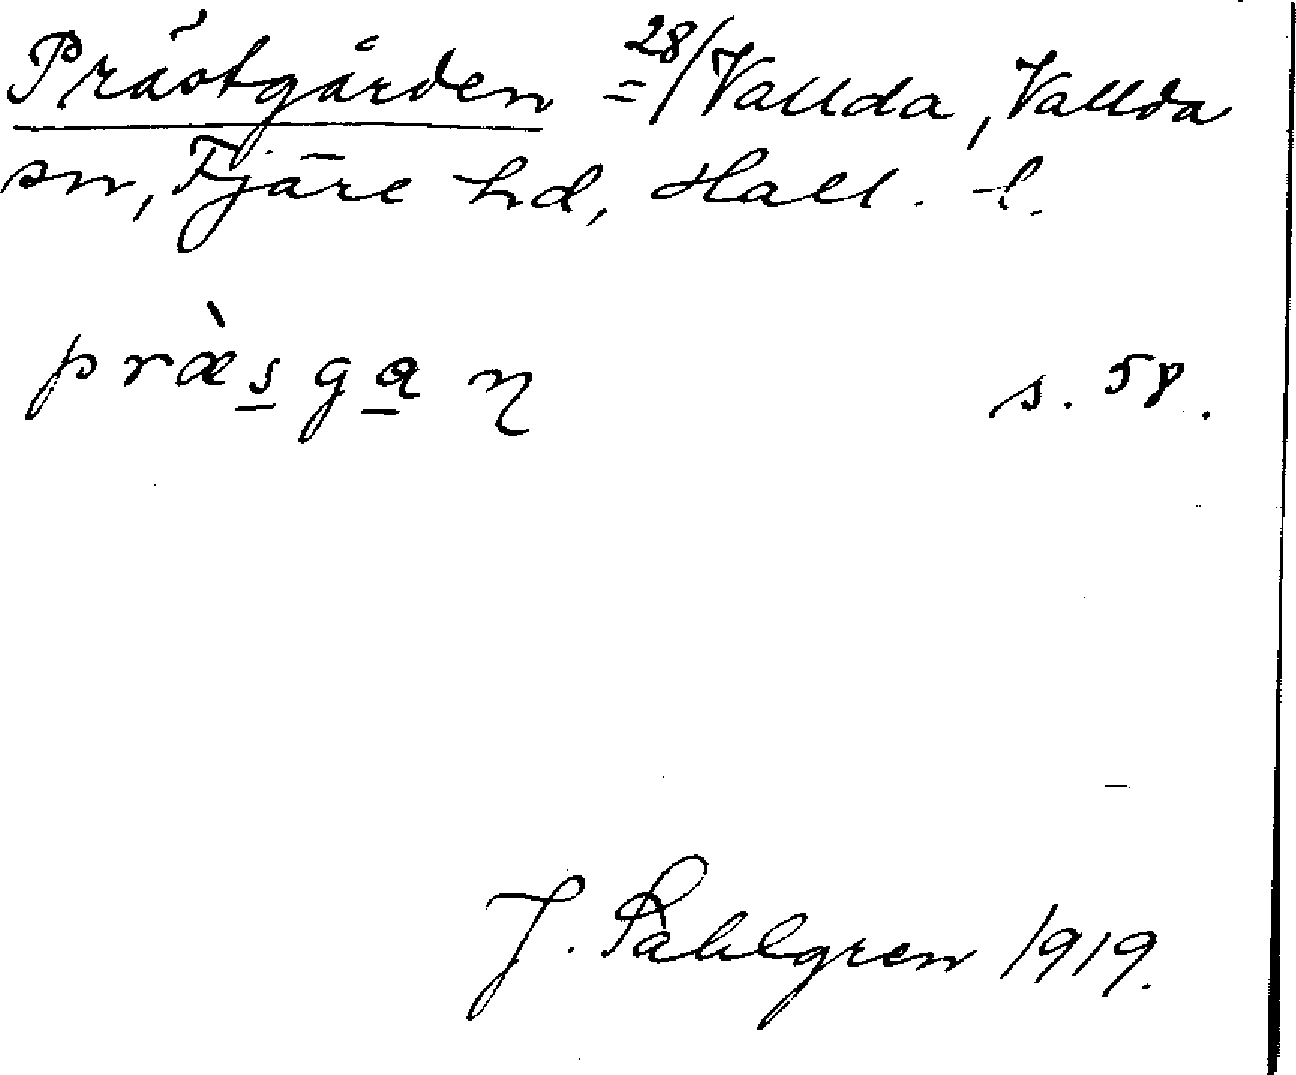 Prästgården 28/ Vallda, Vallda
sn, Fjäre hd, Hall. l.
præ̀s̲ga̲ɳ s. 58.
J. Sahlgren 1919.